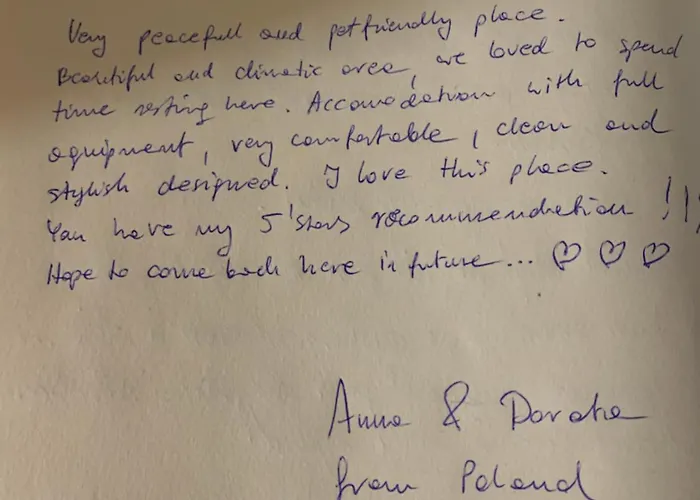 Very peacefull and petfriendly place.
Beautiful and climatic area, we loved to spend
time resting here. Accomodation with full
equipment, very comfortable, clean and
stylish designed. I love this place.
You have my 5'stars recommendation !!!
Hope to come back here in future... ♡ ♡ ♡
Anna & Dorota
from Poland